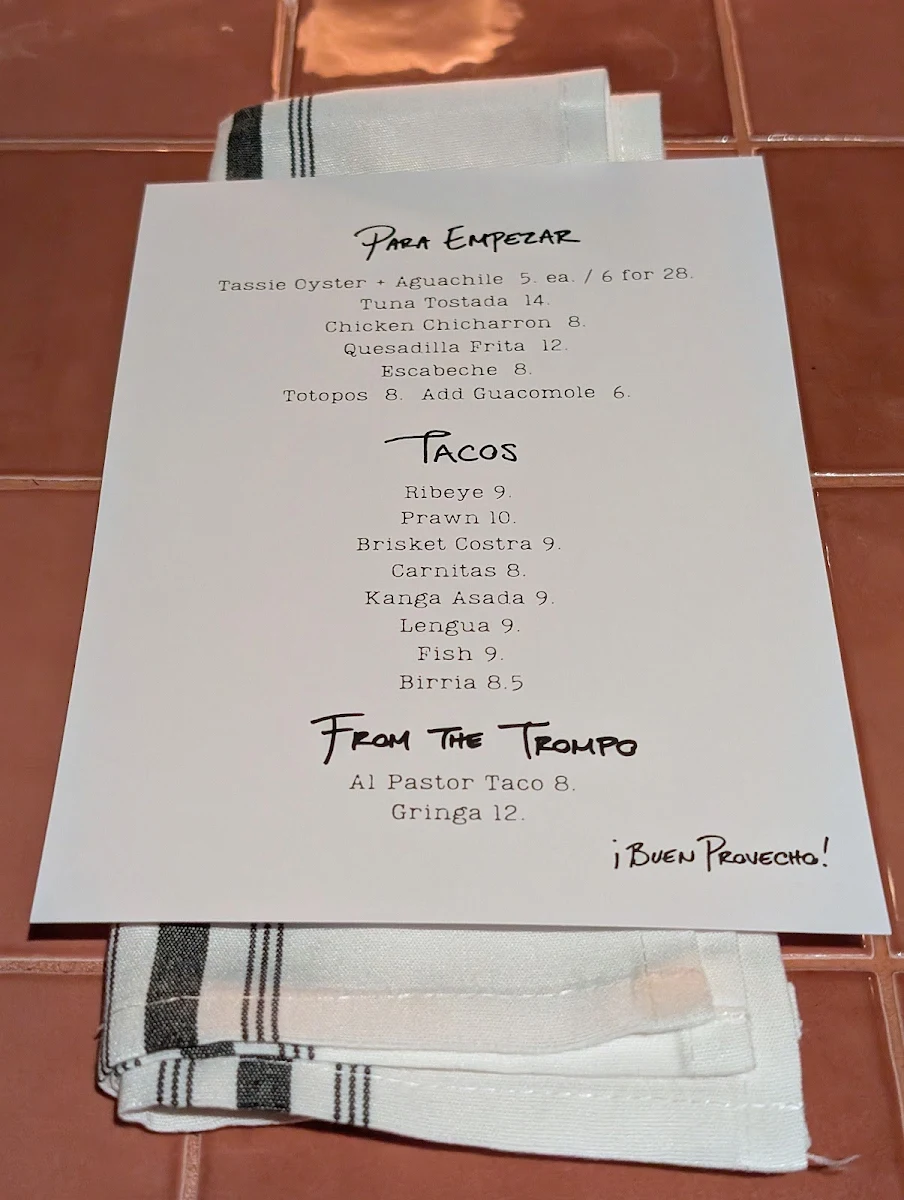 Para Empezar
Tassie Oyster + Aguachile 5. ea. / 6 for 28.
Tuna Tostada 14.
Chicken Chicharron 8.
Quesadilla Frita 12.
Escabeche 8.
Totopos 8. Add Guacomole 6.
Tacos
Ribeye 9.
Prawn 10.
Brisket Costra 9.
Carnitas 8.
Kanga Asada 9.
Lengua 9.
Fish 9.
Birria 8.5
From the Trompo
Al Pastor Taco 8.
Gringa 12.
¡Buen Provecho!